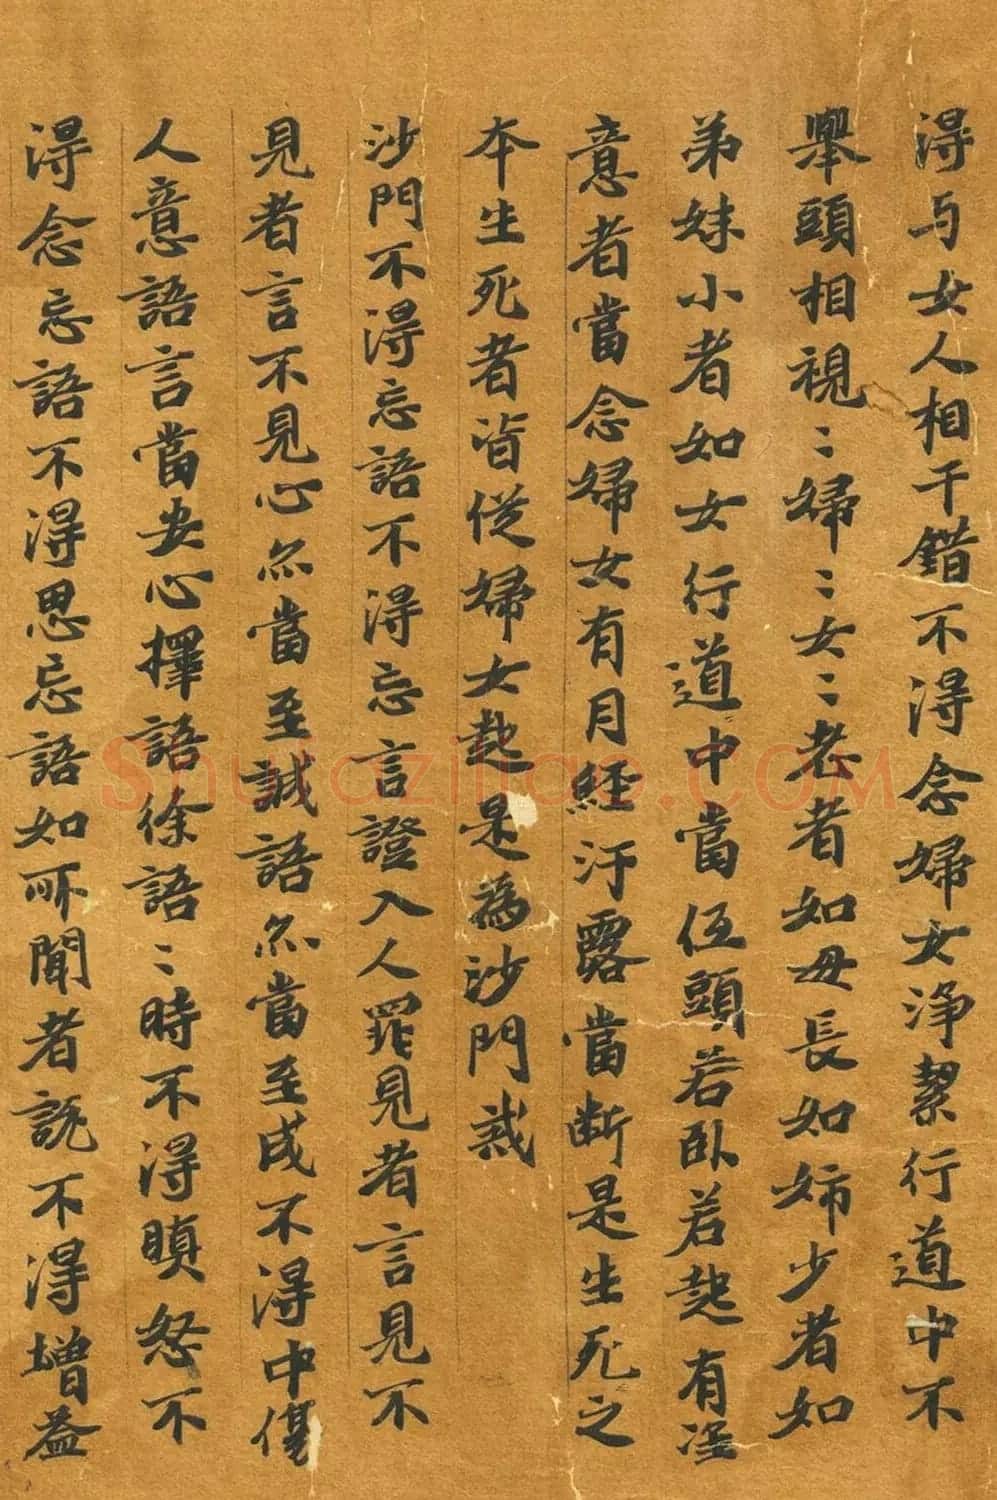 得与女人相干錯不得念婦女淨潔行道中不
舉頭相視〻婦〻女〻老者如母長如姉少者如
弟妹小者如女行道中當伍頭若臥若起有婬
意者當念婦女有月經汙露當断是生死之
本生死者皆從婦女起是為沙門戒
沙門不得忘語不得忘言證入人罪見者言見不
見者言不見心尒當至誠語尒當至成不得中傷
人意語言當安心擇語徐語〻時不得瞋怒不
得念忘語不得思忘語如所聞者説不得增益
shufaziliao.com